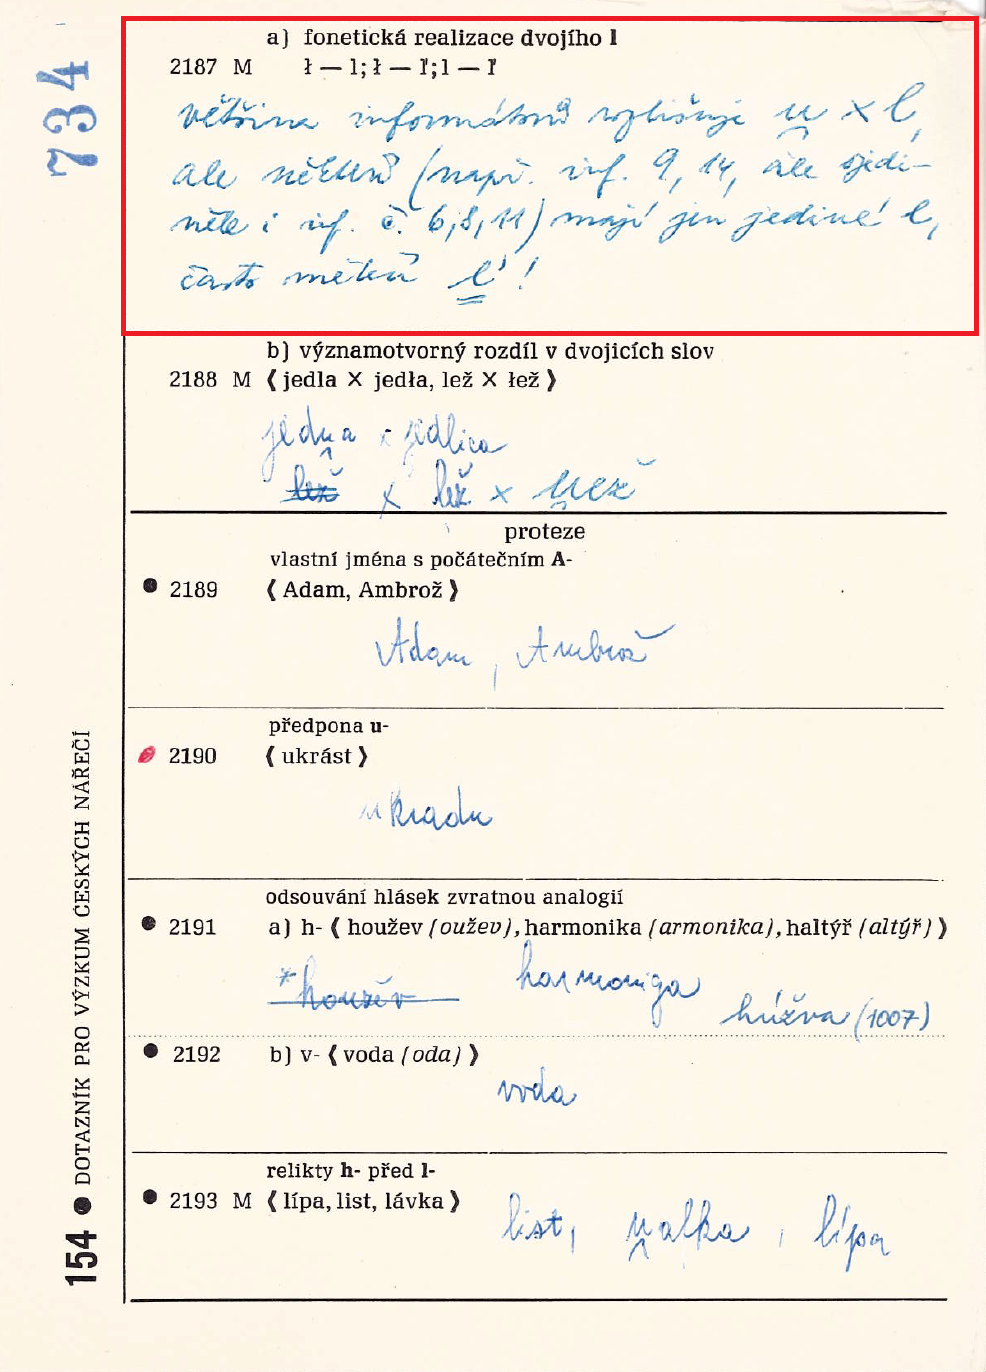 734
a) fonetická realizace dvojího l
2187 M ł — l; ł — ľ; l — ľ
většina informátorů rozlišuje u̯ × l,
ale někteří (např. inf. 9, 14, ale ojedi-
něle i inf. č. 6, 8, 11) mají jen jediné l,
často měkčí l' !
b) významotvorný rozdíl v dvojicích slov
2188 M ⟨ jedla X jedła, lež X łež ⟩
jedu̯a × jedlica
lež × lež × u̯ež
proteze
vlastní jména s počátečním A-
● 2189 ⟨ Adam, Ambrož ⟩
Adam, Ambrož
předpona u-
2190 ⟨ ukrást ⟩
ukradu
odsouvání hlásek zvratnou analogií
● 2191 a) h- ⟨ houžev (oužev), harmonika (armonika), haltýř (altýř) ⟩
*houžev harmoniga
húžva (1007)
● 2192 b) v- ⟨ voda (oda) ⟩
voda
relikty h- před l-
● 2193 M ⟨ lípa, list, lávka ⟩
list, u̯afka, lípa
154 ● DOTAZNÍK PRO VÝZKUM ČESKÝCH NÁŘEČÍ